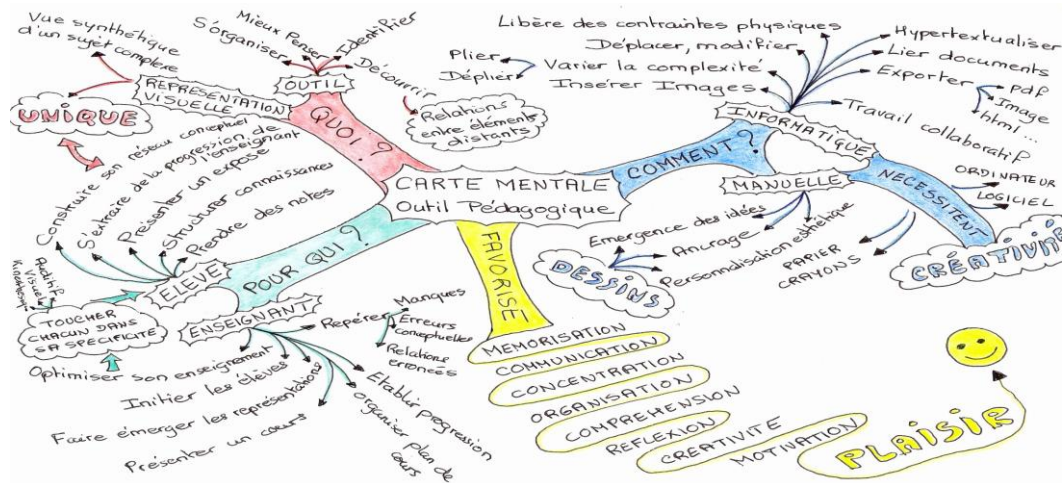 CARTE MENTALE
Outil Pédagogique
QUOI ?
REPRÉSENTATION
VISUELLE
Vue synthétique
d'un sujet complexe
UNIQUE
OUTIL
S'organiser
Mieux Penser
Identifier
Découvrir
Relations
entre éléments
distants
COMMENT ?
INFORMATIQUE
Libère des contraintes physiques
Déplacer, modifier
Varier la complexité
Plier
Déplier
Insérer Images
Hypertextualiser
Lier documents
Exporter
Pdf
Image
html...
Travail collaboratif
MANUELLE
Emergence des idées
Ancrage
Personnalisation esthétique
DESSINS
NECESSITENT
ORDINATEUR
LOGICIEL
PAPIER
CRAYONS
CRÉATIVITÉ
POUR QUI ?
ELEVE
Construire son réseau conceptuel
S'extraire de la progression de
l'enseignant
Présenter un exposé
Structurer connaissances
Prendre des notes
Auditif
Visuel
TOUCHER
CHACUN DANS
SA SPECIFICITE
ENSEIGNANT
Repérer
Manques
Erreurs
conceptuelles
Relations
erronées
Optimiser son enseignement
Initier les élèves
Faire émerger les représentations
Présenter un cours
Etablir progression
organiser plan de
cours
FAVORISE
MEMORISATION
COMMUNICATION
CONCENTRATION
ORGANISATION
COMPREHENSION
REFLEXION
CREATIVITE
MOTIVATION
PLAISIR